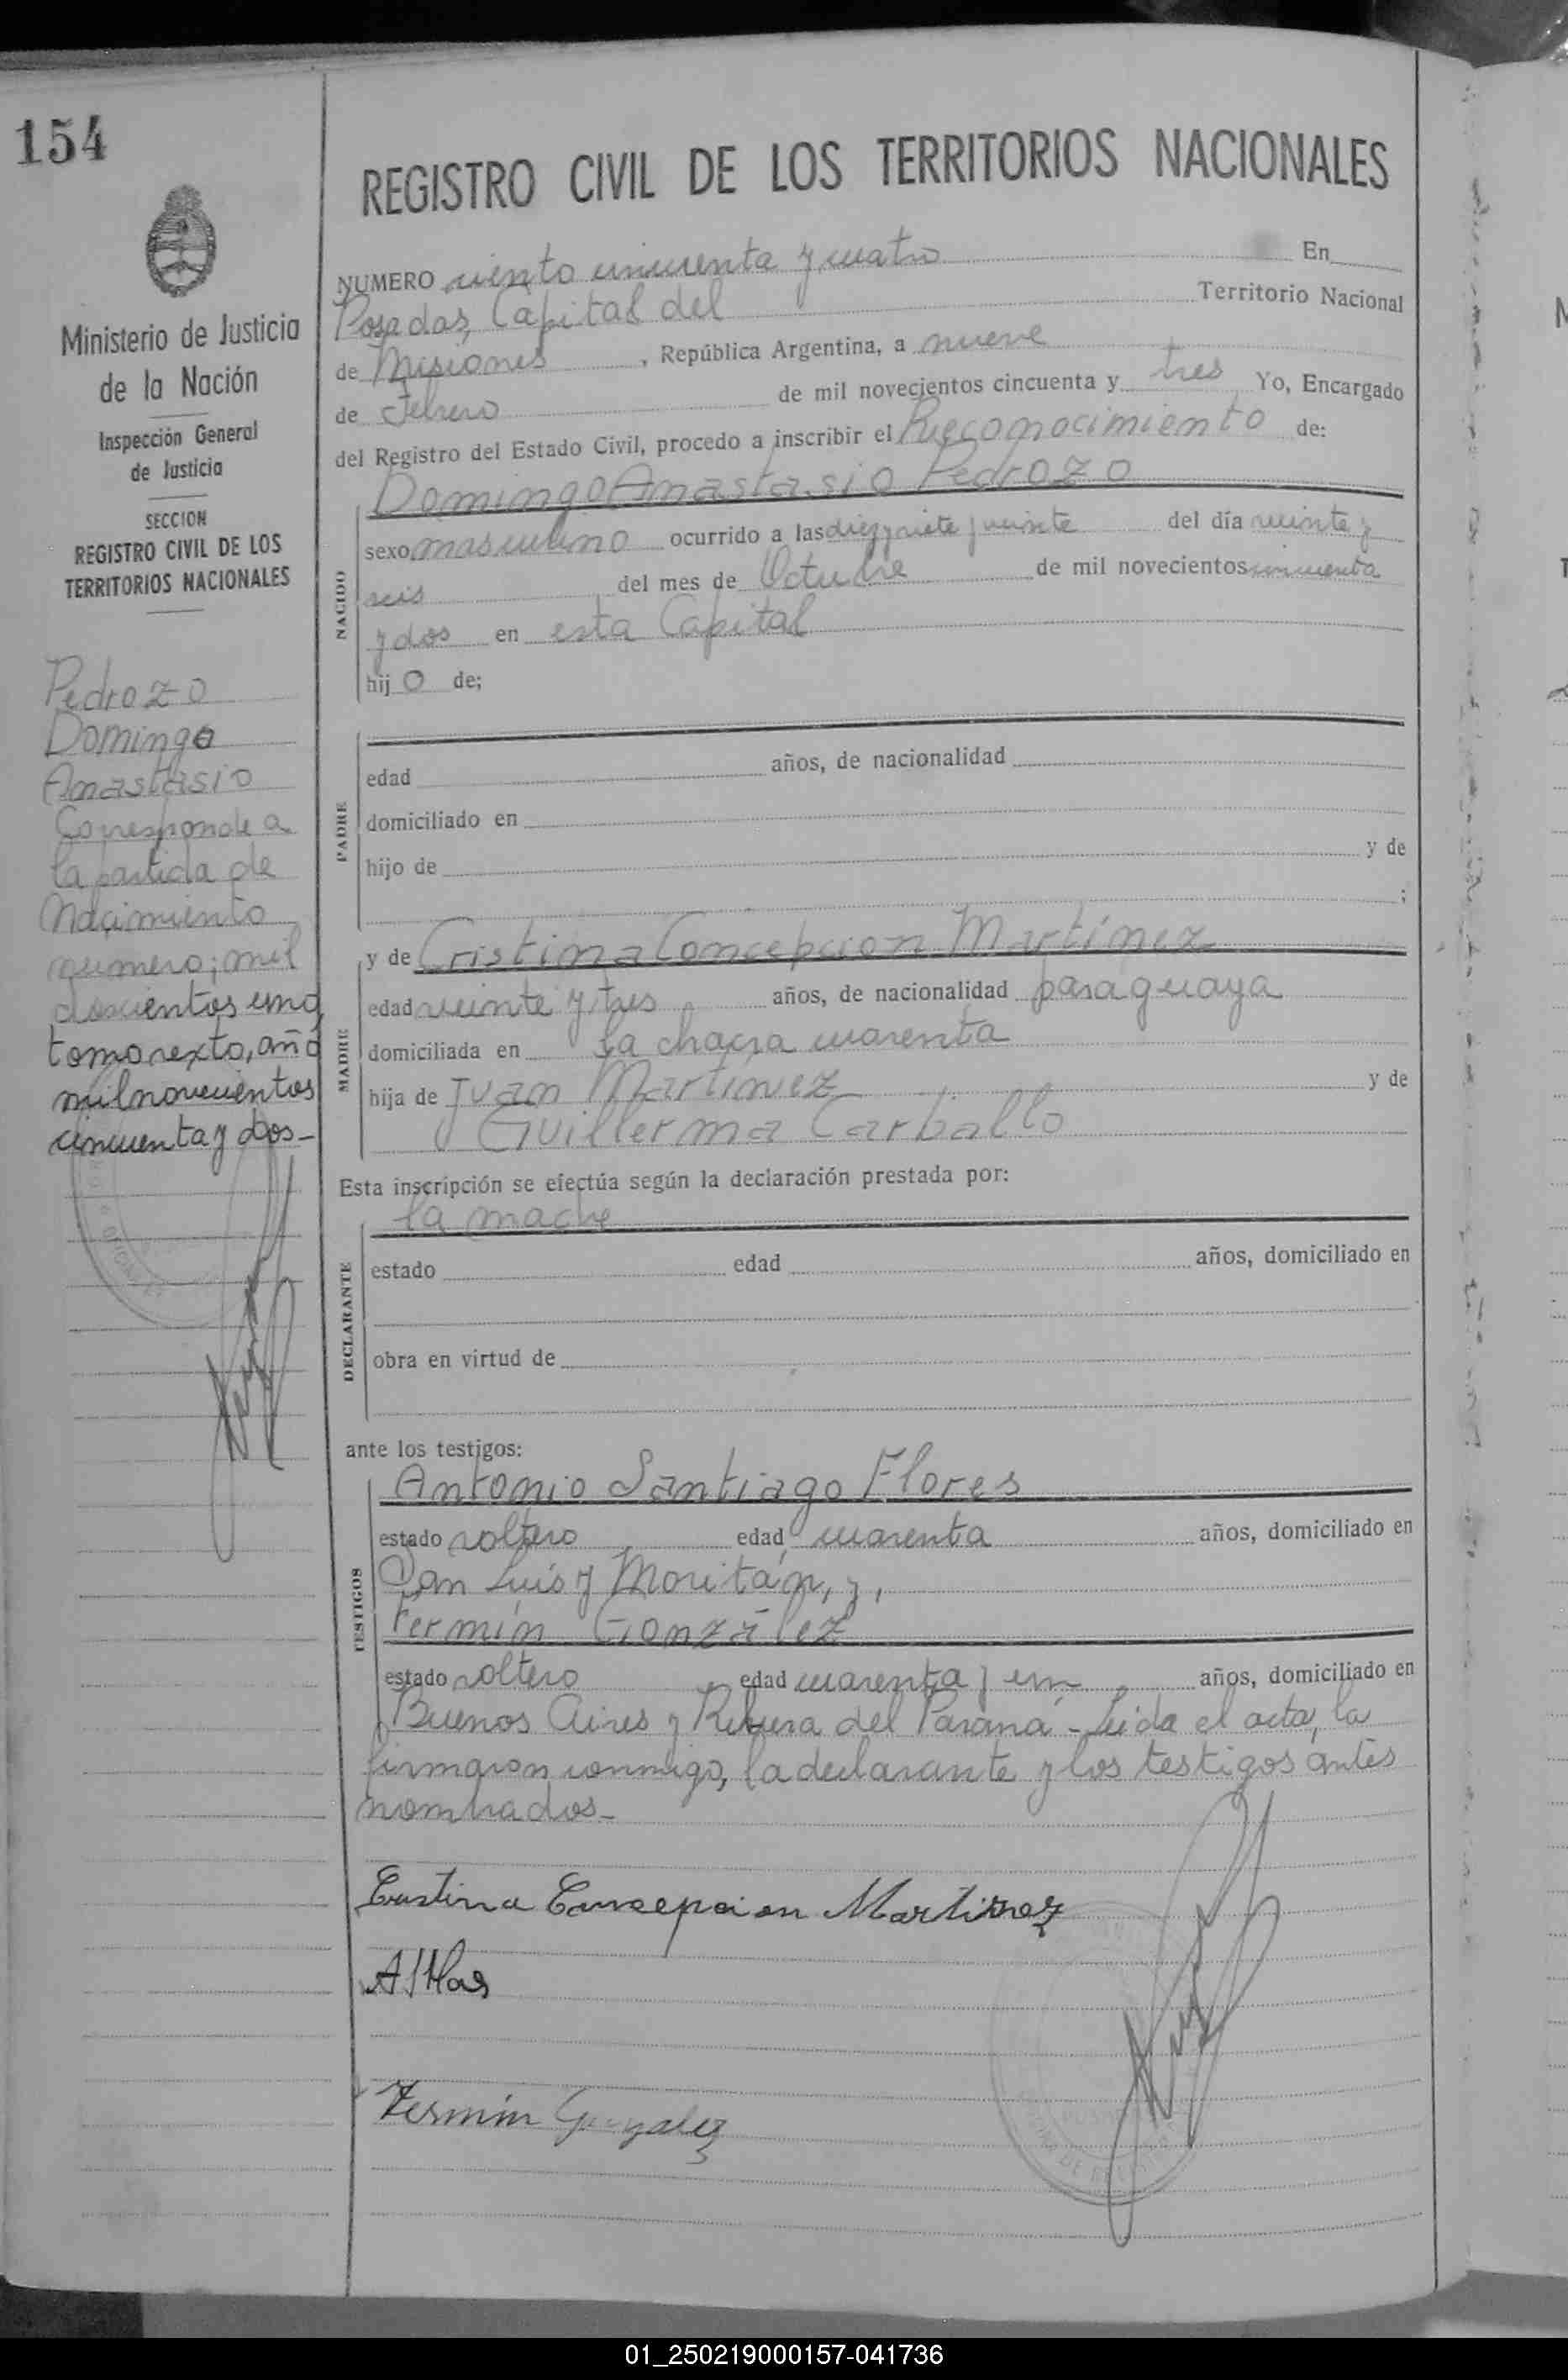 154
Ministerio de Justicia
de la Nación
Inspección General
de Justicia
SECCION
REGISTRO CIVIL DE LOS
TERRITORIOS NACIONALES
Pedrozo
Domingo
Anastasio
Corresponde a
la partida de
Nacimiento
número; mil
doscientos uno,
tomo sexto, año
mil novecientos
cincuenta y dos-
REGISTRO CIVIL DE LOS TERRITORIOS NACIONALES
NUMERO ciento cincuenta y cuatro En
Posadas, Capital del Territorio Nacional
de Misiones, República Argentina, a nueve
de Febrero de mil novecientos cincuenta y tres Yo, Encargado
del Registro del Estado Civil, procedo a inscribir el Reconocimiento de:
Domingo Anastasio Pedrozo
NACIDO
sexo masculino ocurrido a las diez y siete y veinte del día veinte y
seis del mes de Octubre de mil novecientos cincuenta
y dos en esta Capital
hijo de;
PADRE
edad años, de nacionalidad
domiciliado en
hijo de y de
;
MADRE
y de Cristina Concepcion Martínez
edad veinte y tres años, de nacionalidad paraguaya
domiciliada en la chacra cuarenta
hija de Juan Martínez y de
Guillerma Carballo
Esta inscripción se efectúa según la declaración prestada por:
la madre
DECLARANTE
estado edad años, domiciliado en
obra en virtud de
ante los testigos:
TESTIGOS
Antonio Santiago Flores
estado soltero edad cuarenta años, domiciliado en
San Luis y Moritán, y,
Fermín González
estado soltero edad cuarenta y un años, domiciliado en
Buenos Aires y Rivera del Paraná - Leida el acta, la
firmaron conmigo, la declarante y los testigos antes
nombrados-
Cristina Concepcion Martinez
Fermín Gonzalez
01_250219000157-041736